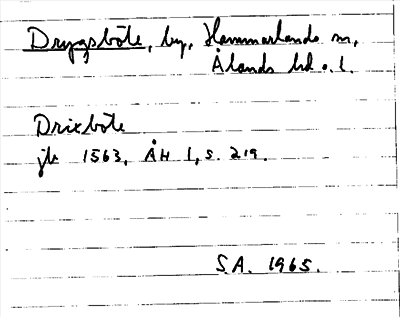 Dryggsböle, by, Hammarlands sn,
Ålands hd o. l.
Drixböle
jb 1563, ÅH 1, s. 219.
S.A. 1965.